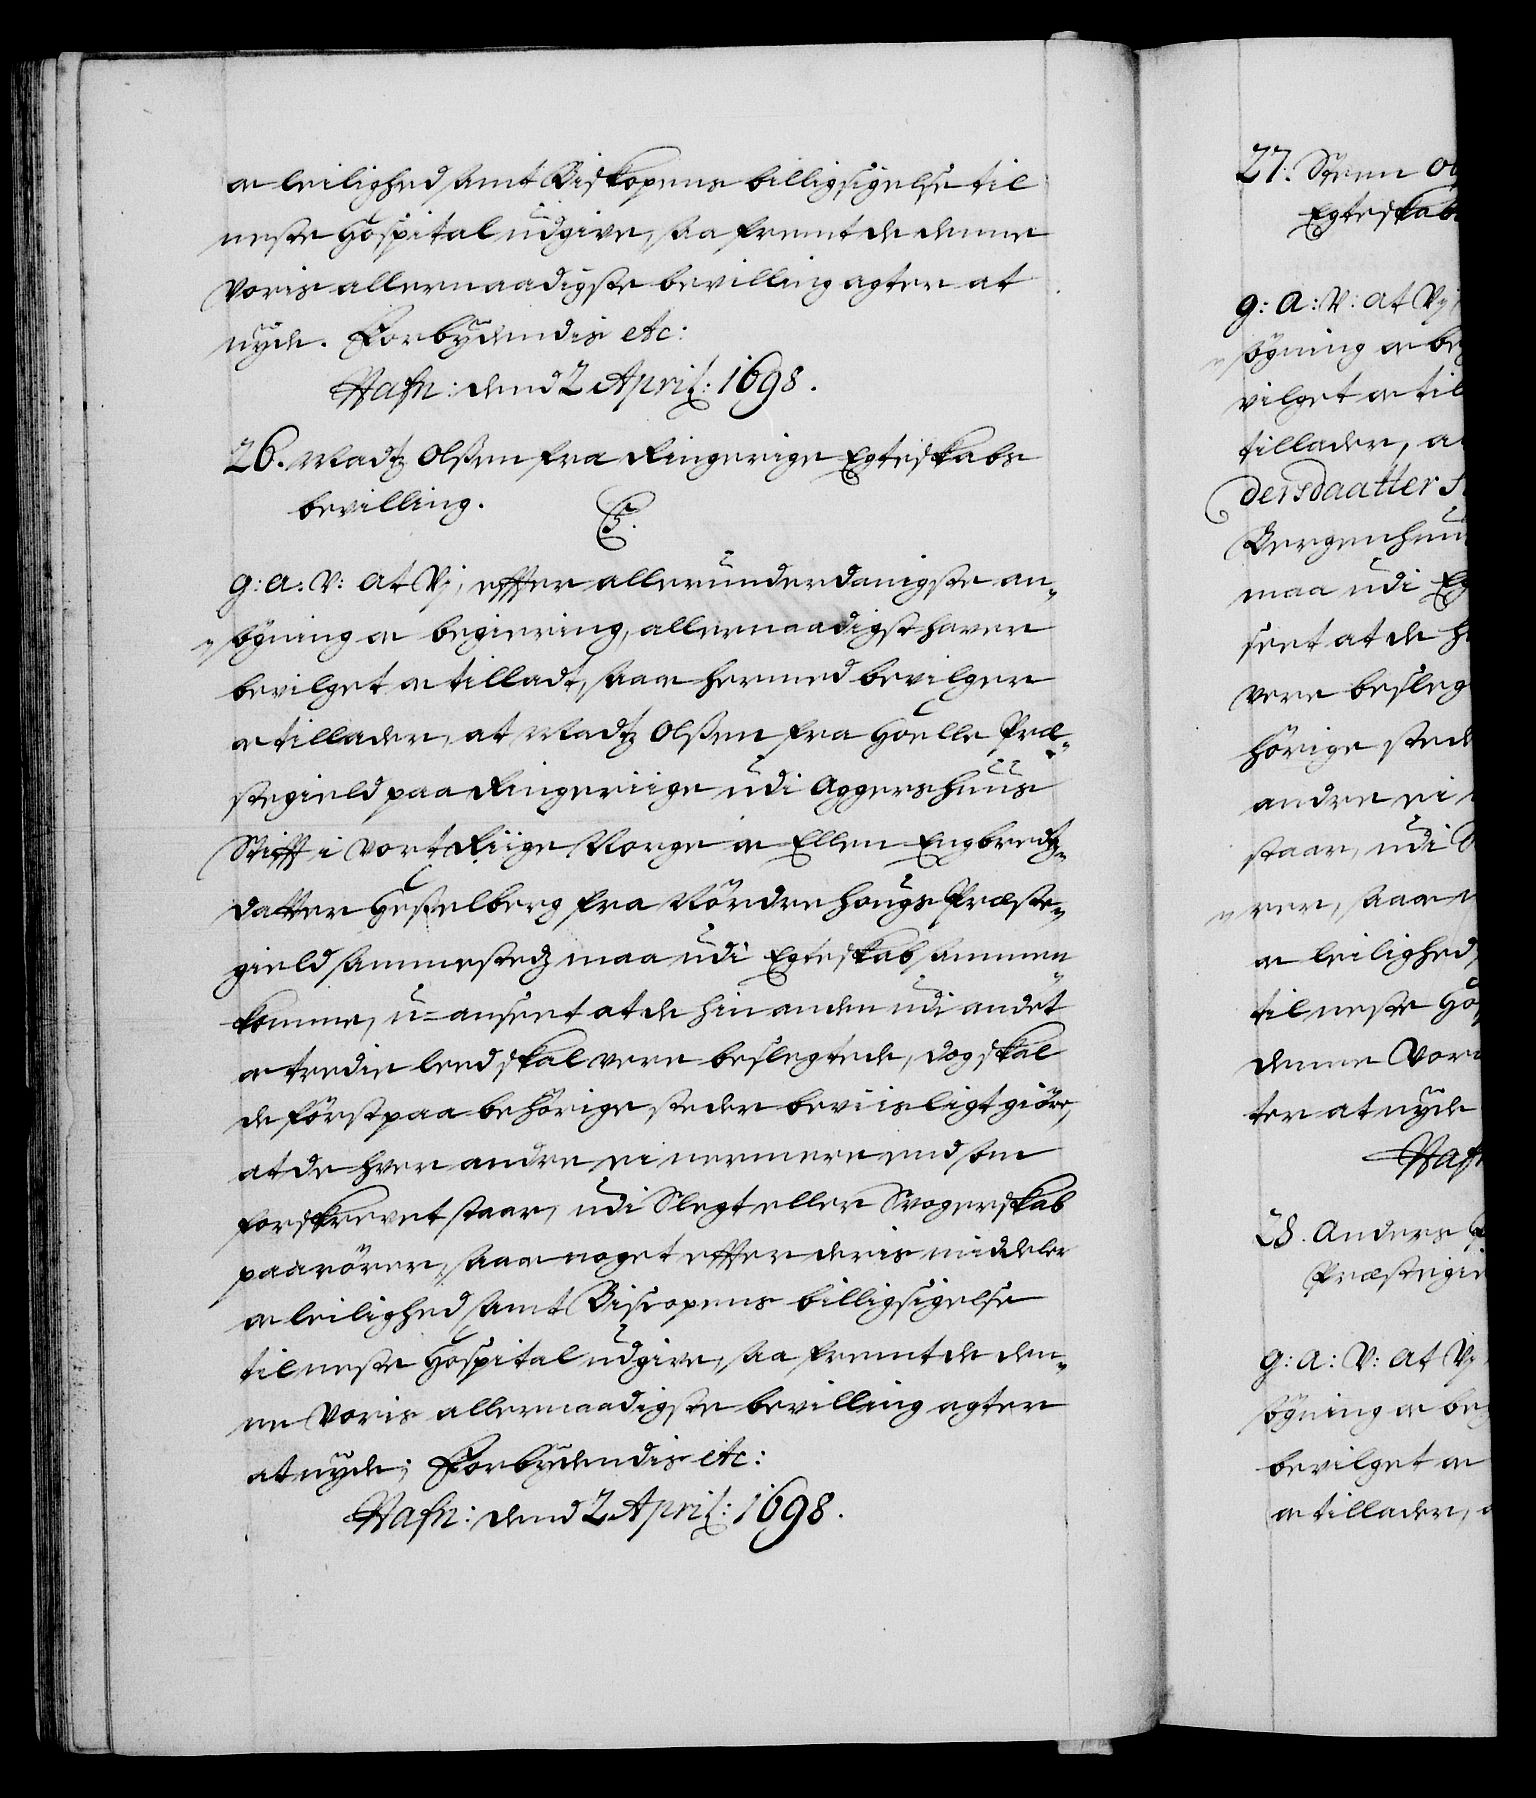 oc leilighed samt Biskopens billigsigelse til
neste Hospital udgive, saa fremt de denne
Voris allernaadigste bevilling agter at
nyde. Forbydendis etc:
Hafn: dend 2 April: 1698.
26. Madtz Olßen fra Ringerige Egteskabs
bevilling. C.
G: A: V: At Vj, effter allerunderdanigste an-
søgning oc begiering, allernaadigst haver
bevilget oc tilladt, saa oc hermed bevilger
oc tillader, at Madtz Olßen fra Hoelle Præ-
stegield paa Ringeriige udi Aggershuus
Stifft i vort Riige Norge oc Ellen Engbredtz-
datter Gesselberg fra Nordrehougs Præste-
gield sammestedz maa udi Egteskab sammen-
komme, u-anseet at de hin anden udi andet
oc tredie leed skal vere beslegtede, dog skal
de først paa behørige steder beviisligt giøre,
at de hver andre ei nermere end som
forskrevet staar, udi Slegt eller Svogerskab
paarører, saa oc noget effter deris middeler
oc leilighed samt Biscopens billigsigelse
til neste Hospital udgive, saa fremt de den-
ne Voris allernaadigste bevilling agter
at nyde; Forbydendis etc:
Hafn: dend 2 April: 1698.
27. Steen
Egteskabs
G: A: V: At Vj,
søgning oc
vilget oc til
tillader,
dersdaatter
Bergenhuu
maa udi
seet at de
vere besleg
hørige stede
andre ei
staar, udi
rer, saa oc
oc leilighed
til neste Ho
denne Vori
ter at nyde
Haf
28. Anders
Præstegie
G: A: V: At Vj
søgning oc beg
bevilget oc
oc tillader,